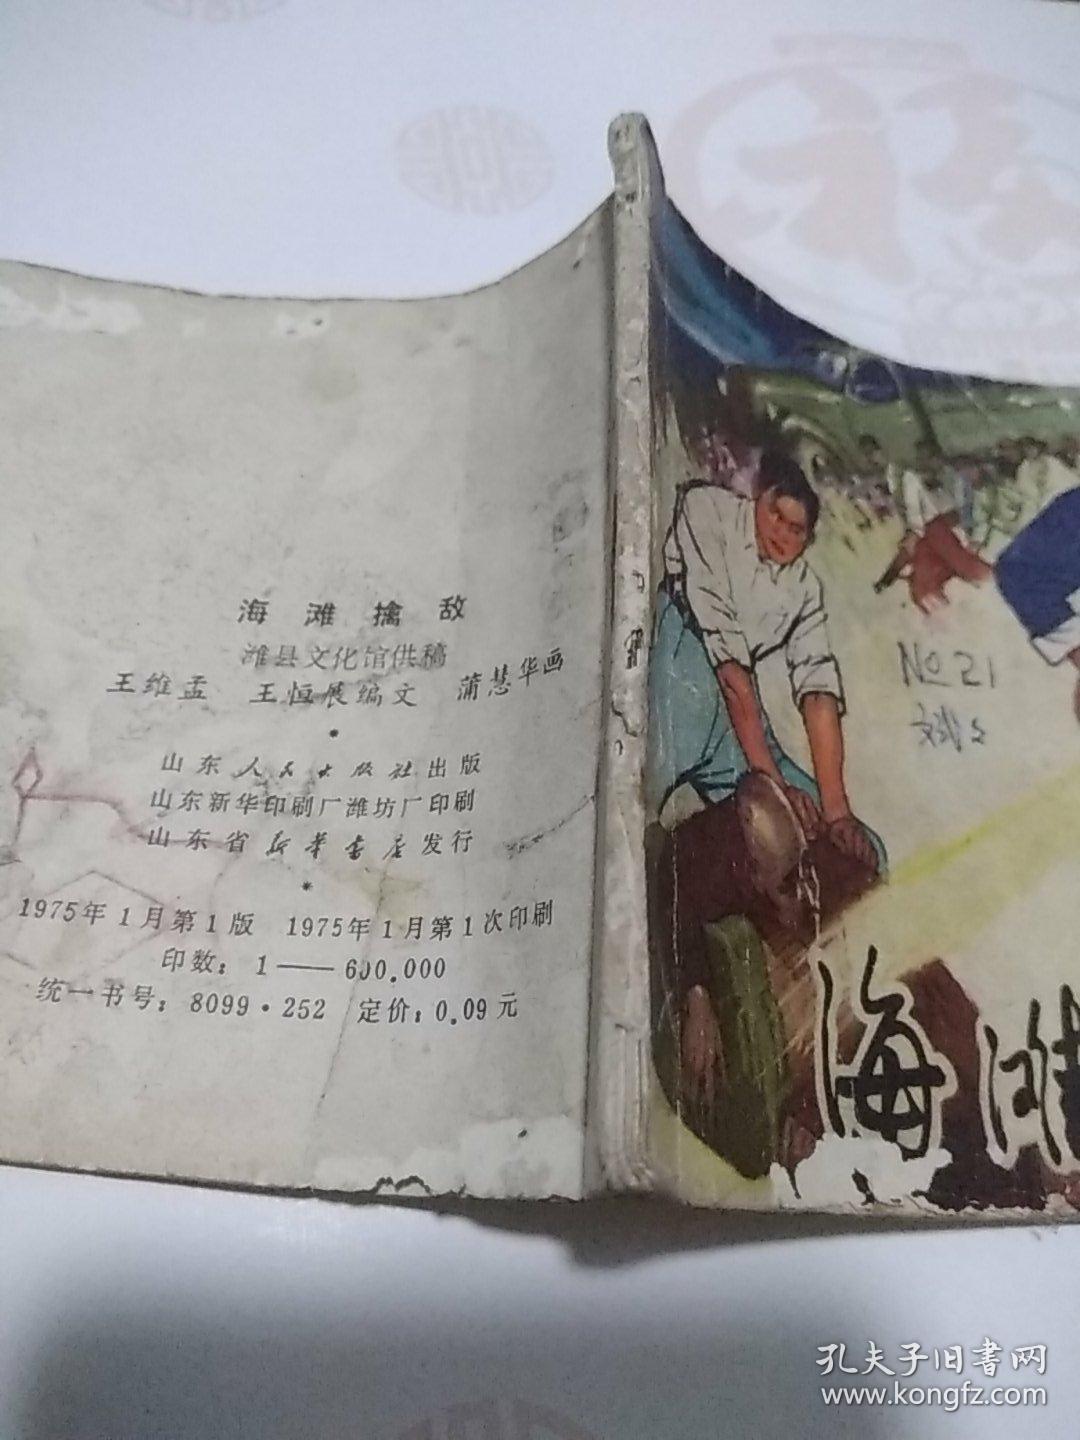 海滩擒敌
潍县文化馆供稿
王维孟 王恒展编文 蒲慧华画
*
山东人民出版社出版
山东新华印刷厂潍坊厂印刷
山东省新华书店发行
*
1975年1月第1版 1975年1月第1次印刷
印数：1——600.000
统一书号：8099·252 定价：0.09元
No 21
海滩
孔夫子旧书网
www.kongfz.com